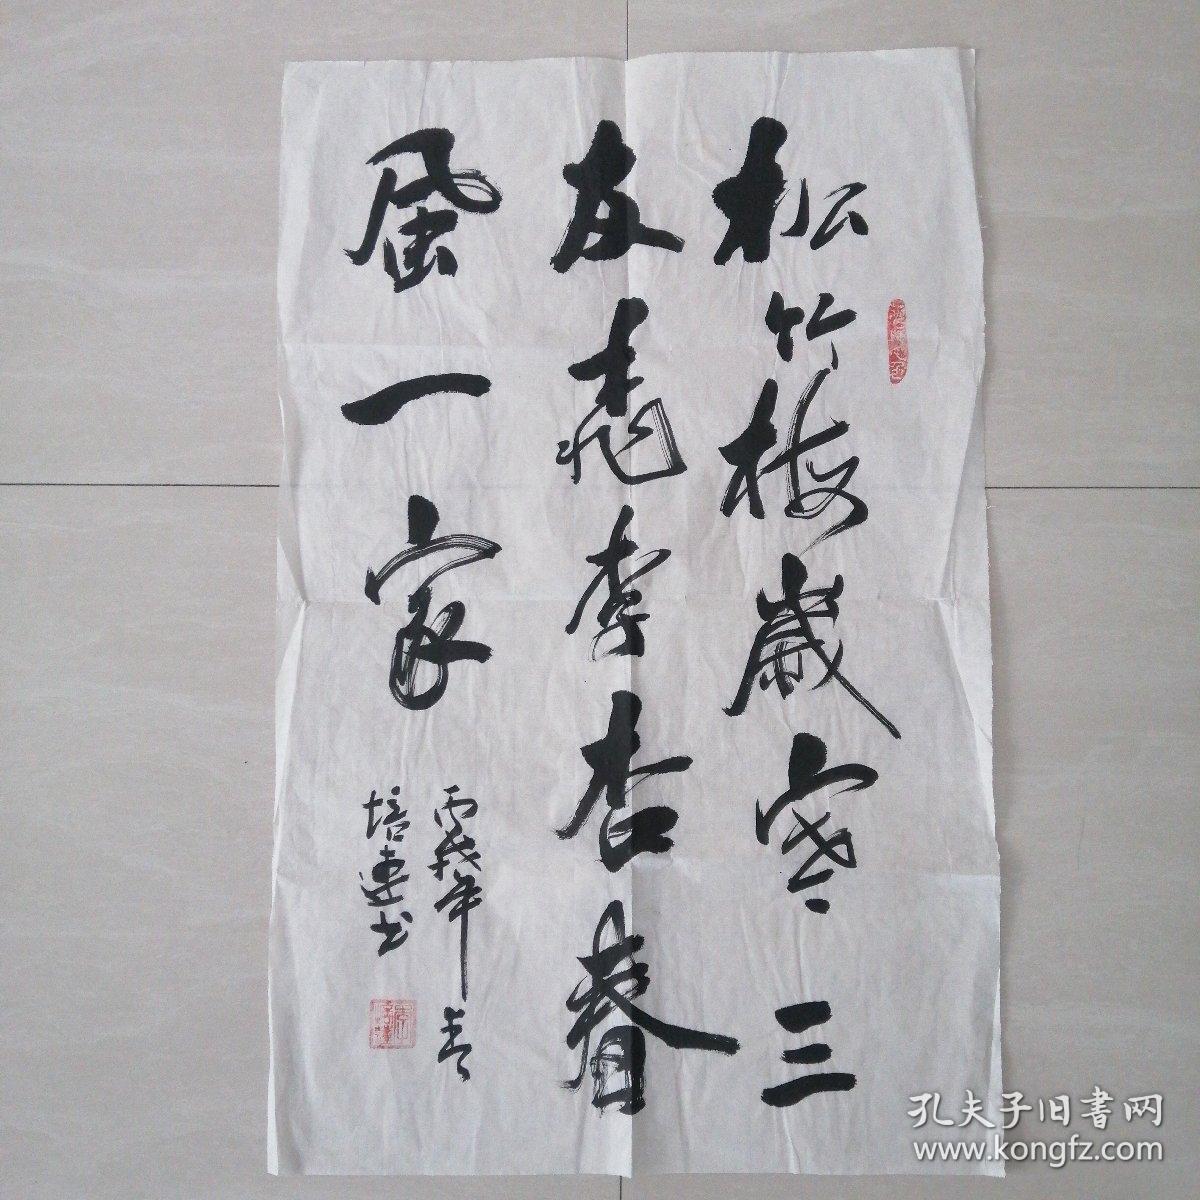 松竹梅歲寒三
友桃李杏春
風一家
丙戌年春
培連书
孔夫子旧書网
www.kongfz.com